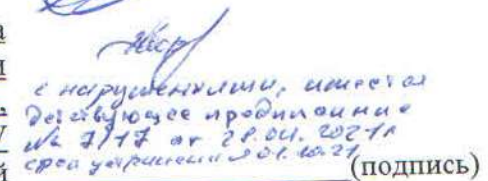 а
и
с нарушениями, имеется
действующее предписание
№ 7/17 от 28.04.2021г
й срок устранения 01.10.21 (подпись)